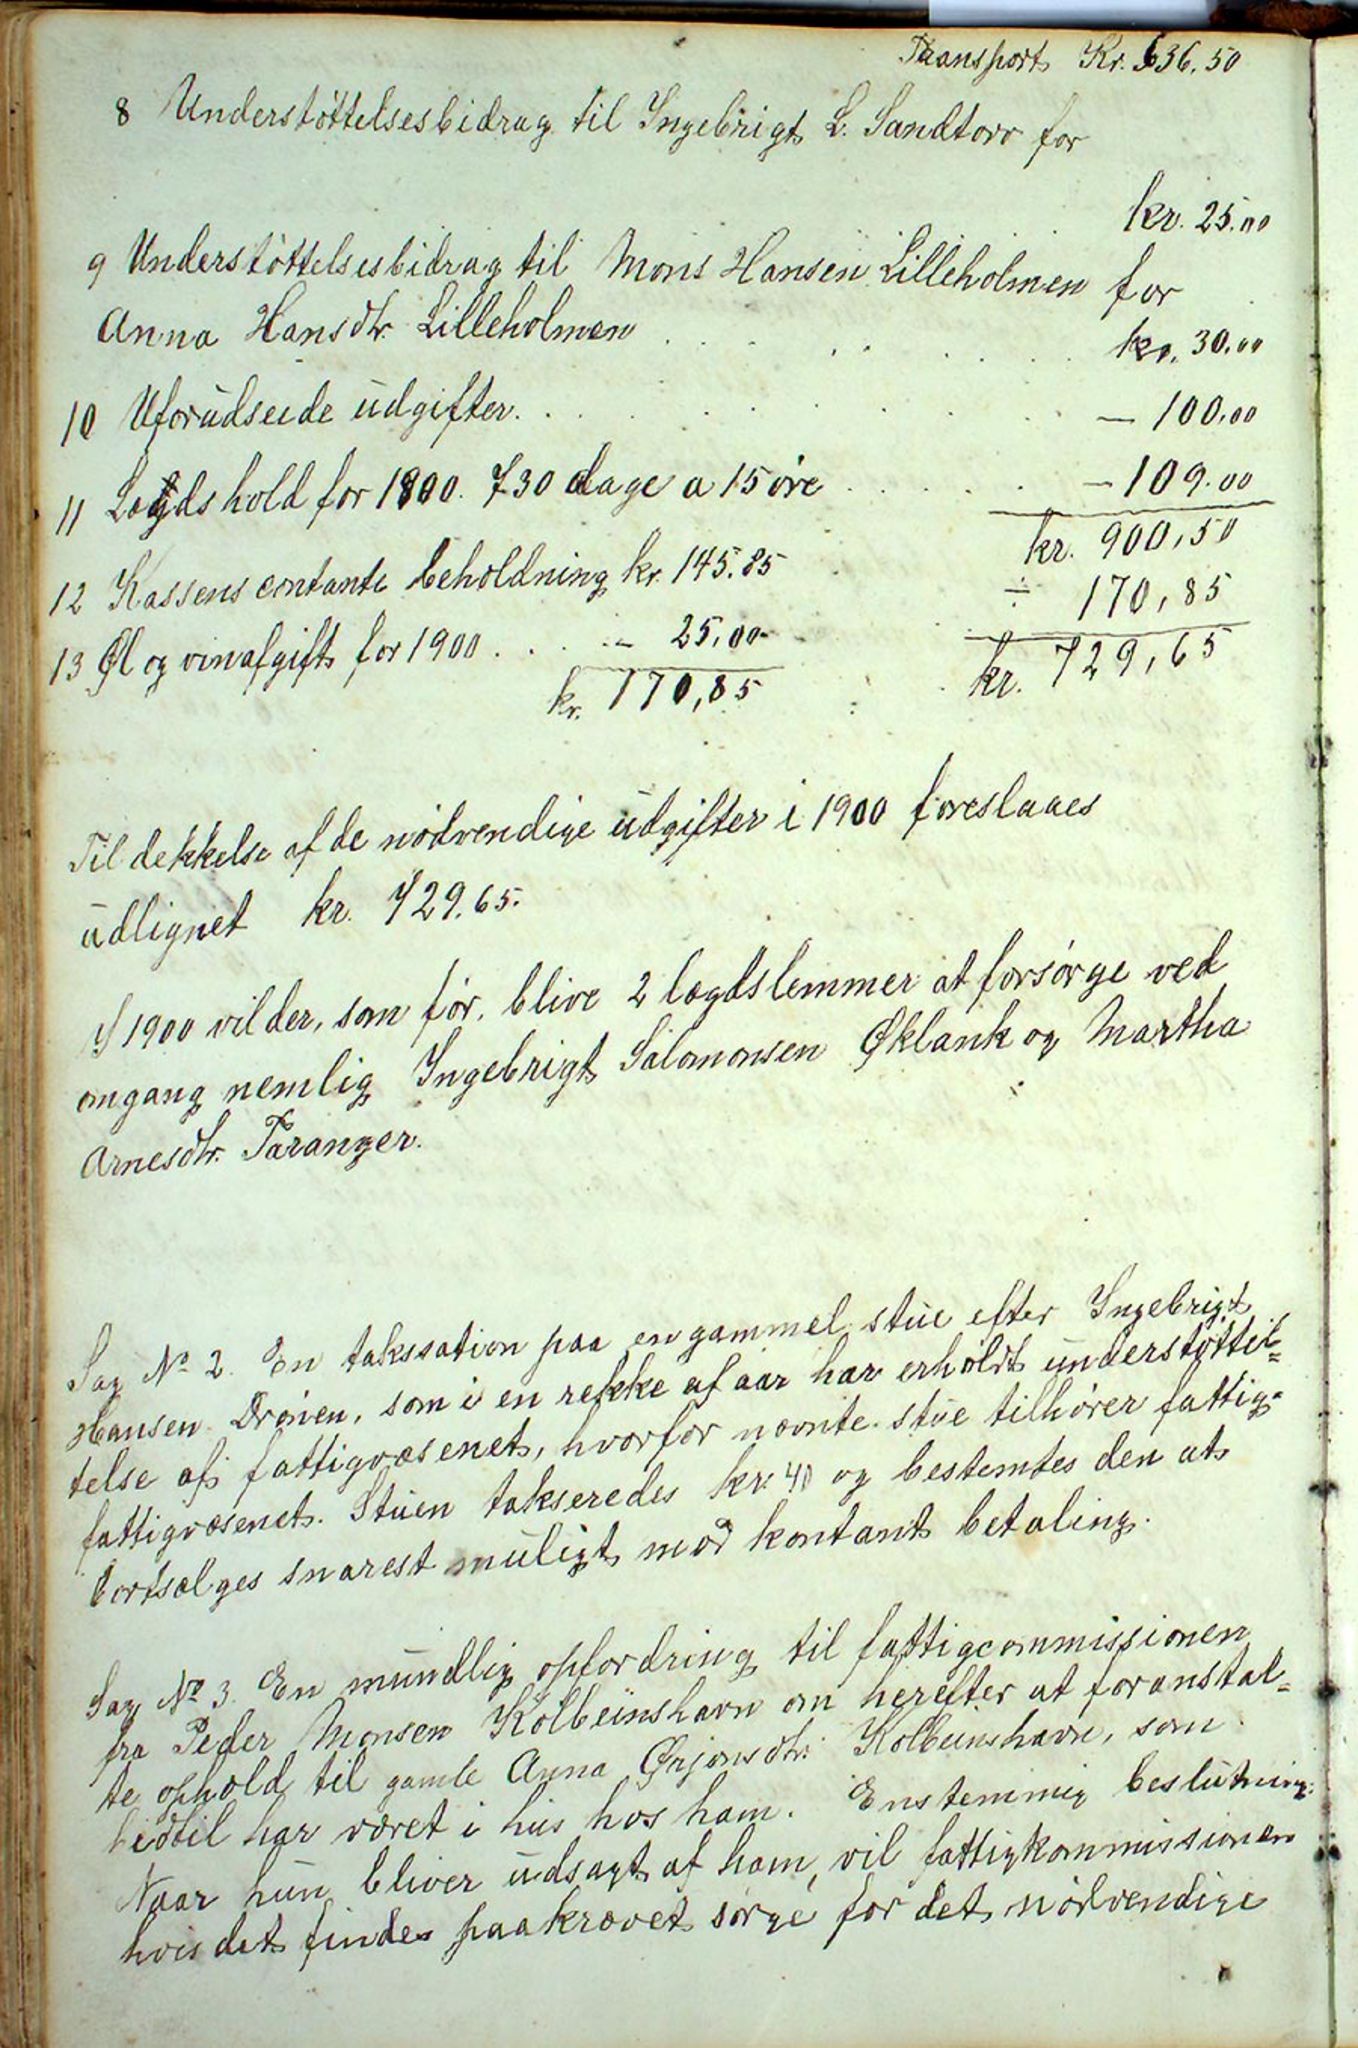 Transport Kr. 636.50
8 Understøttelsesbidrag til Ingebrigt L. Sandtorv for
kr. 25.00
9 Understøttelsesbidrag til Mons Hansen Lilleholmen for
Anna Hansdtr. Lilleholmen . . . . . . kr. 30.00
10 Uforudseede udgifter. . . . . . . . — 100.00
11 Lægdshold for 1900. 730 dage a 15 øre . . . . — 109.00
kr. 900,50
12 Kassens contante beholdning kr. 145.85 ÷ 170,85
13 Øl og vinafgift for 1900 . . . . — 25.00 kr. 729,65
kr. 170,85
Til dekkelse af de nødvendige udgifter i 1900 foreslaaes
udlignet kr. 729.65.
I 1900 vil der, som før, blive 2 lægdslemmer at forsørge ved
omgang nemlig Ingebrigt Salomonsen Øklank og Martha
Arnesdtr. Taranger.
Sag No 2. En takssation paa en gammel stue efter Ingebrigt
Hansen Drønen, som i en rekke af aar har erholdt understøttel=
telse af fattigvæsenet, hvorfor nævnte stue tilhører fattig=
fattigvæsenet. Stuen takseredes kr. 40 og bestemtes den at
bortsælges snarest muligt mod kontant betaling.
Sag No 3. En mundlig opfordring til fattigcommissionen
fra Peder Monsen Kolbeinshavn om herefter at foranstal=
te ophold til gamle Anna Ørjansdtr. Kolbeinshavn, som
hidtil har været i hus hos ham. Enstemmig beslutning:
Naar hun bliver udsagt af ham, vil fattigkommissionen
hvis det findes paakrævet sørge for det nødvendige